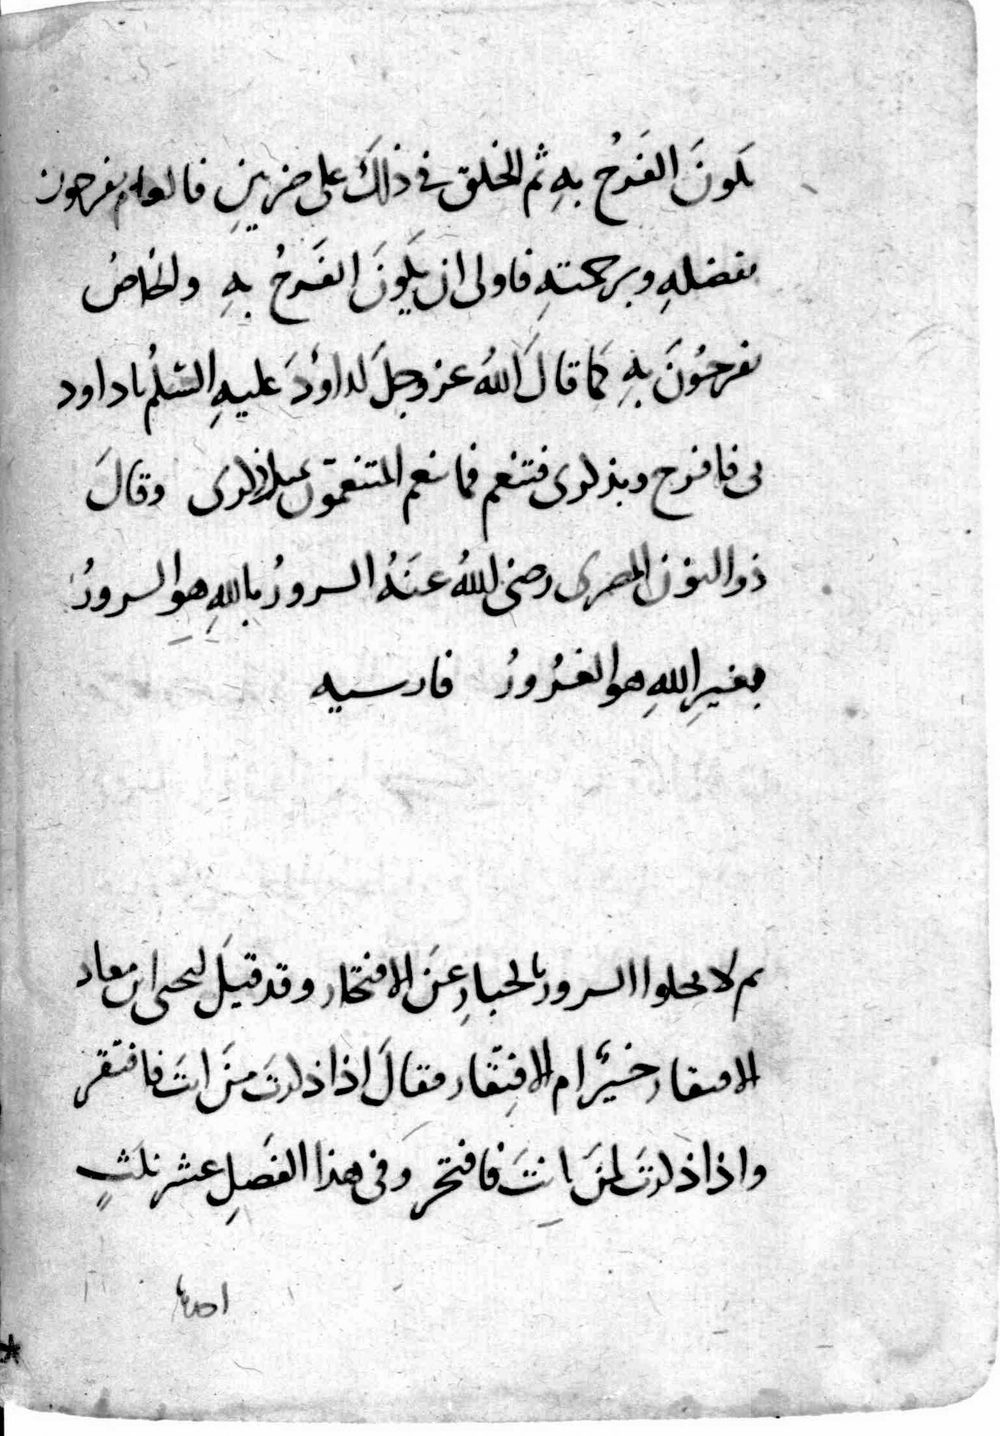 يكونَ الفَرحُ بهِ ثم الخلق في ذلكَ على ضربينِ فالعوام يفرحون
بفضلهِ وبرحمتهِ فاولى ان يكونَ الفَرحُ بهِ والخاصُ
يفرحُونَ بهِ كما قالَ اللهُ عز وجلَ لداودَ عليهِ السّلمُ ياداود
بى فافرح وبذكرى فتنعم فما تنعم المتنعمون بمثل ذكرى وقالَ
ذو النون المصرى رضى اللهُ عنهُ السرورُ باللهِ هو السرورُ
بغيرِ اللهِ هو الغرورُ فارسيه
ثم لا يخلوا السرور بالجبارِ عَن الافتخار وقد قيلَ ليحيى ابن معاد
الافتقار خيرٌ ام الافتِقار فقالَ اذا ذكرتَ مَن انتَ فافتقر
واذا ذكرتَ لمَن انتَ فافتخر وفى هذا الفَصلِ عشر نكثٍ
احدها